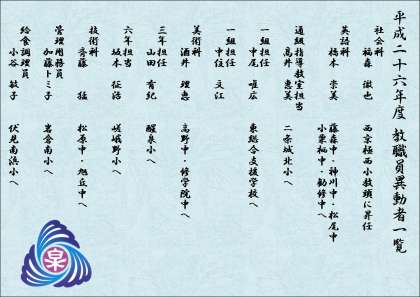 平成二十六年度 教職員異動者一覧
社会科
福森 徹也 西京極西小教頭に昇任
英語科
橋本 崇美 藤森中・神川中・松尾中
小栗栖中・勧修中へ
通級指導教室担当
高井 恵美 二条城北小へ
一組担任
中尾 唯広 東総合支援学校へ
一組担任
中住 文江
美術科
酒井 理恵 高野中・修学院中へ
三年担任
山田 有紀 醍泉小へ
六年担当
坂本 征治 嵯峨野小へ
技術科
斉藤 猛 松原中・旭丘中へ
管理用務員
加藤トミ子 岩倉南小へ
給食調理員
小谷 敏子 伏見南浜小へ